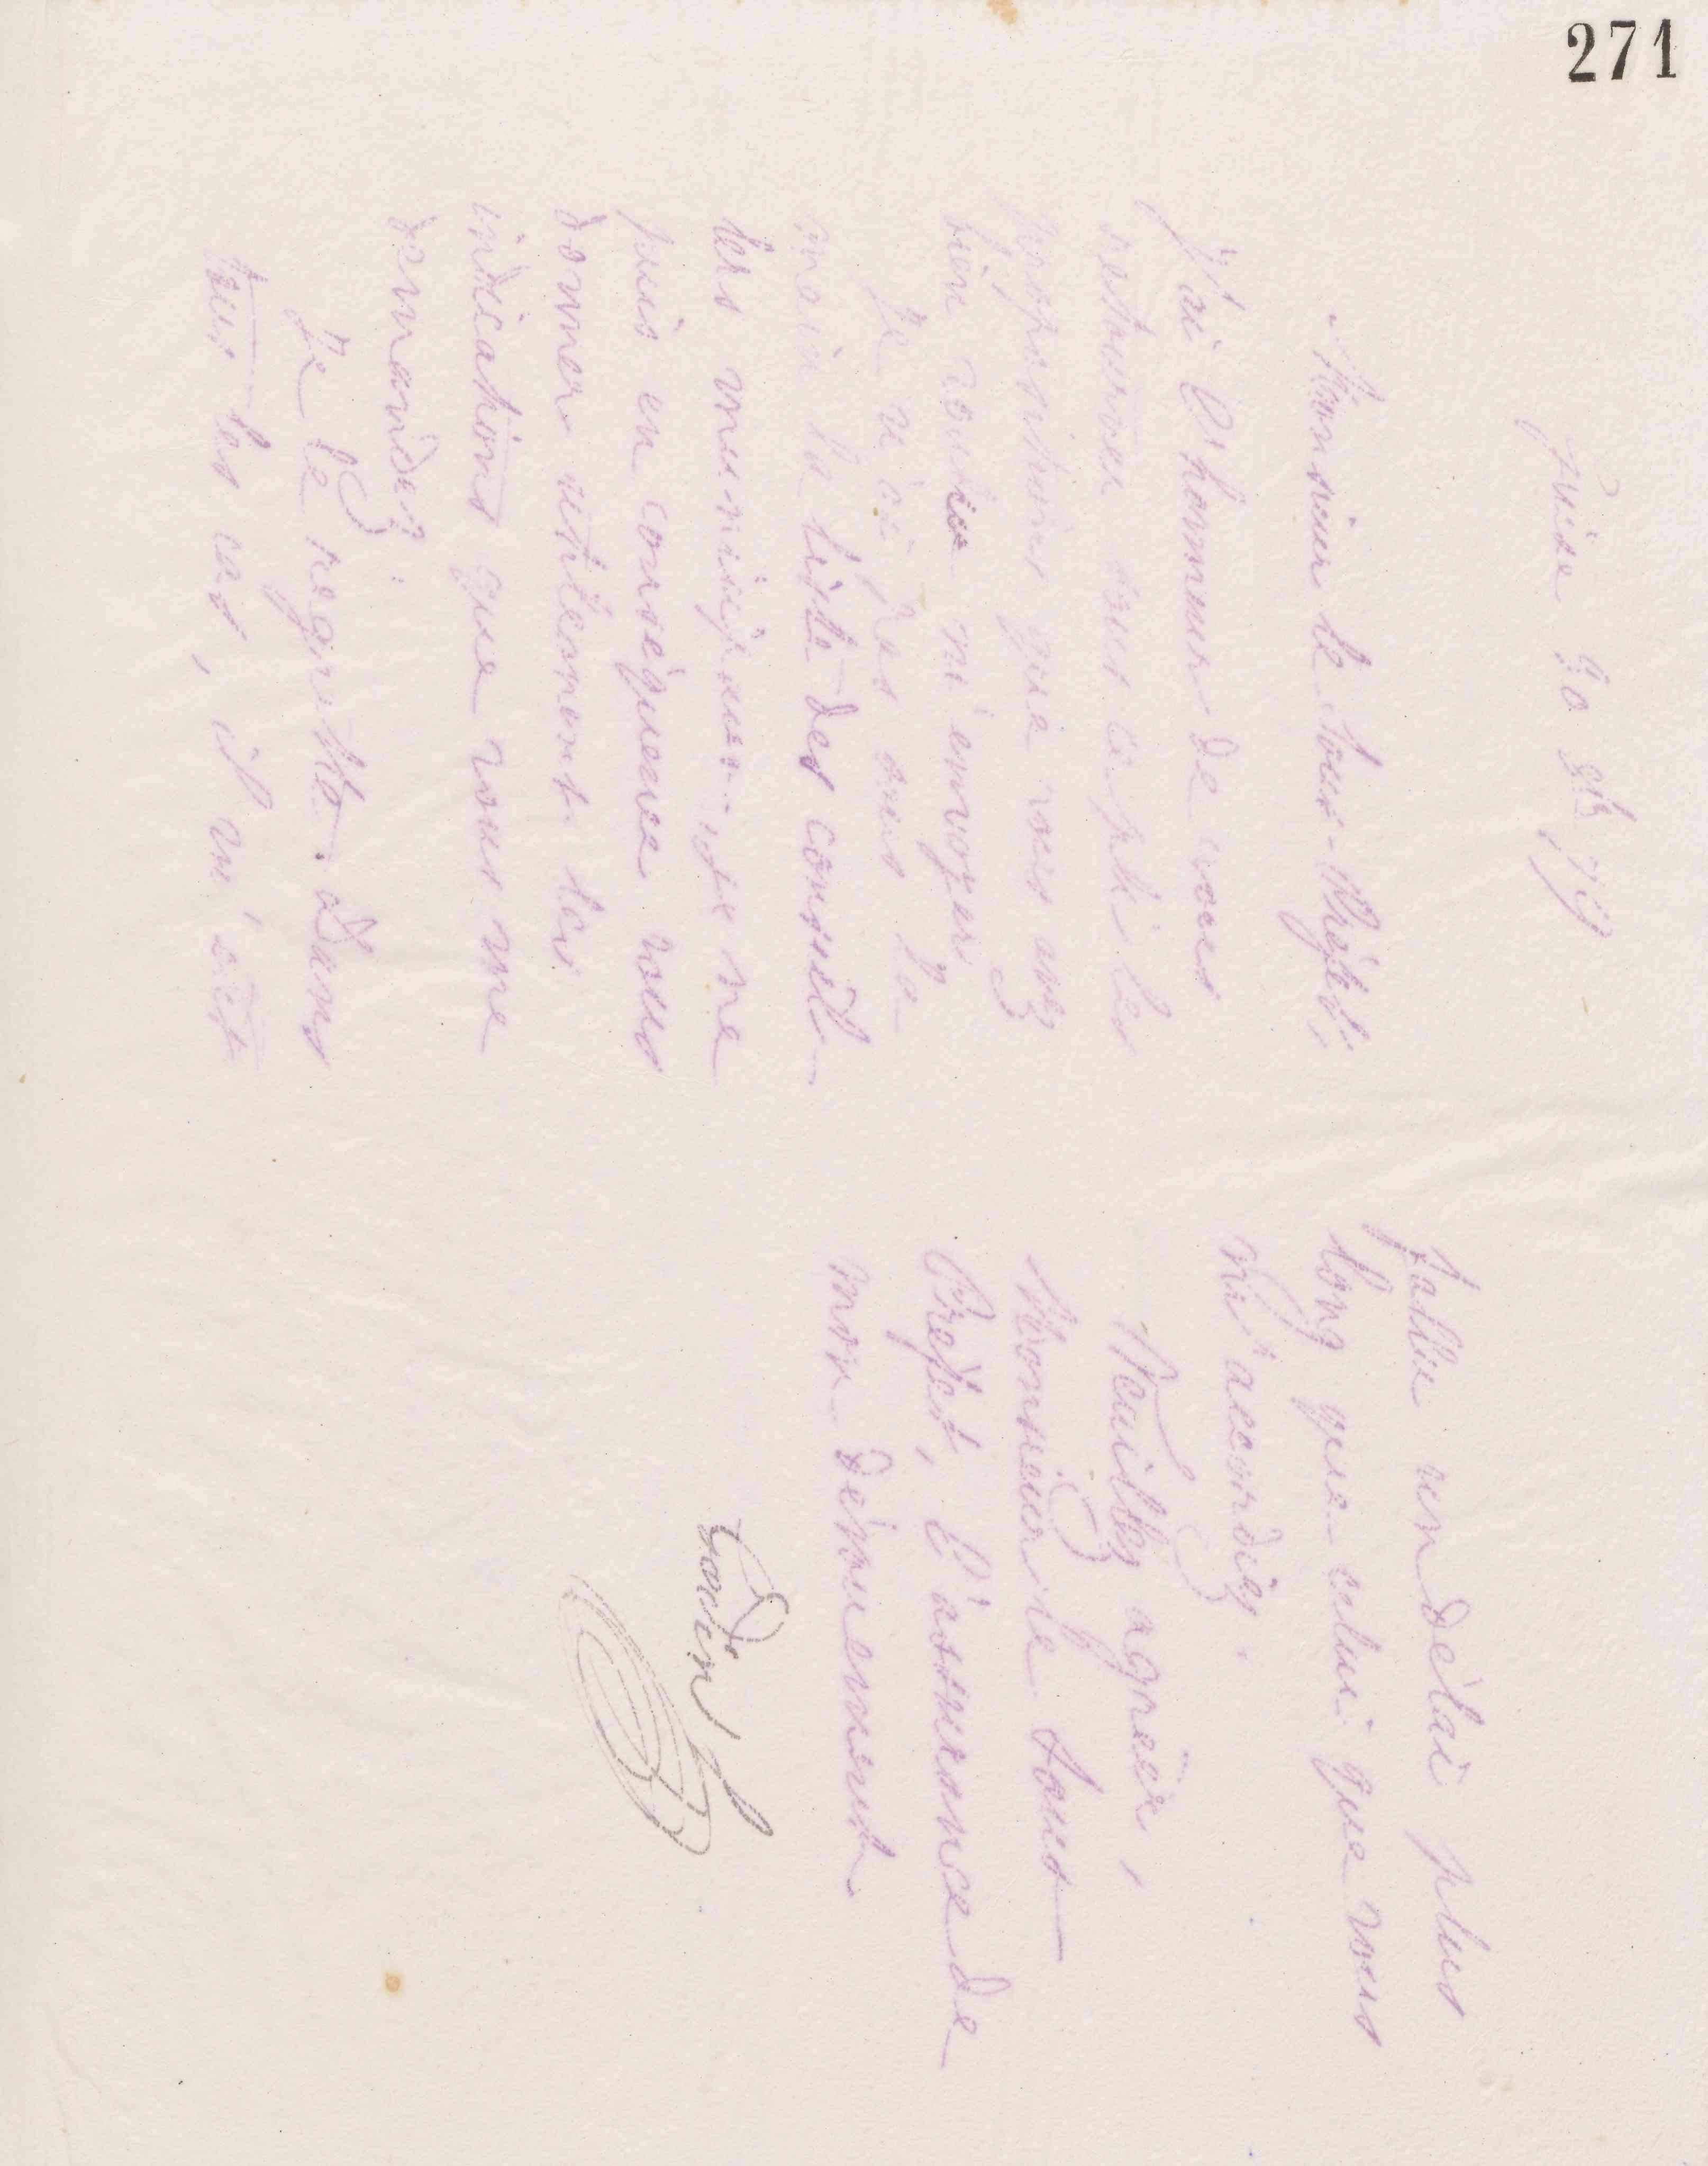 271
Guise 30 8bre 79
Monsieur le Sous-Préfet,
J'ai l'honneur de vous
retourner sous ce pli les
propositions que vous avez
bien voulu m'envoyer.
Je n'ai pas sous la
main la liste des conseil-
lers municipaux : je ne
puis en conséquence vous
donner utilement les
indications que vous me
demandez.
Je le regrette. Dans
tous les cas, il m'eût
fallu un délai plus
long que celui que vous
m'accordiez.
Veuillez agréer,
Monsieur le Sous
Préfet, l'assurance de
mon dévouement.
Godin